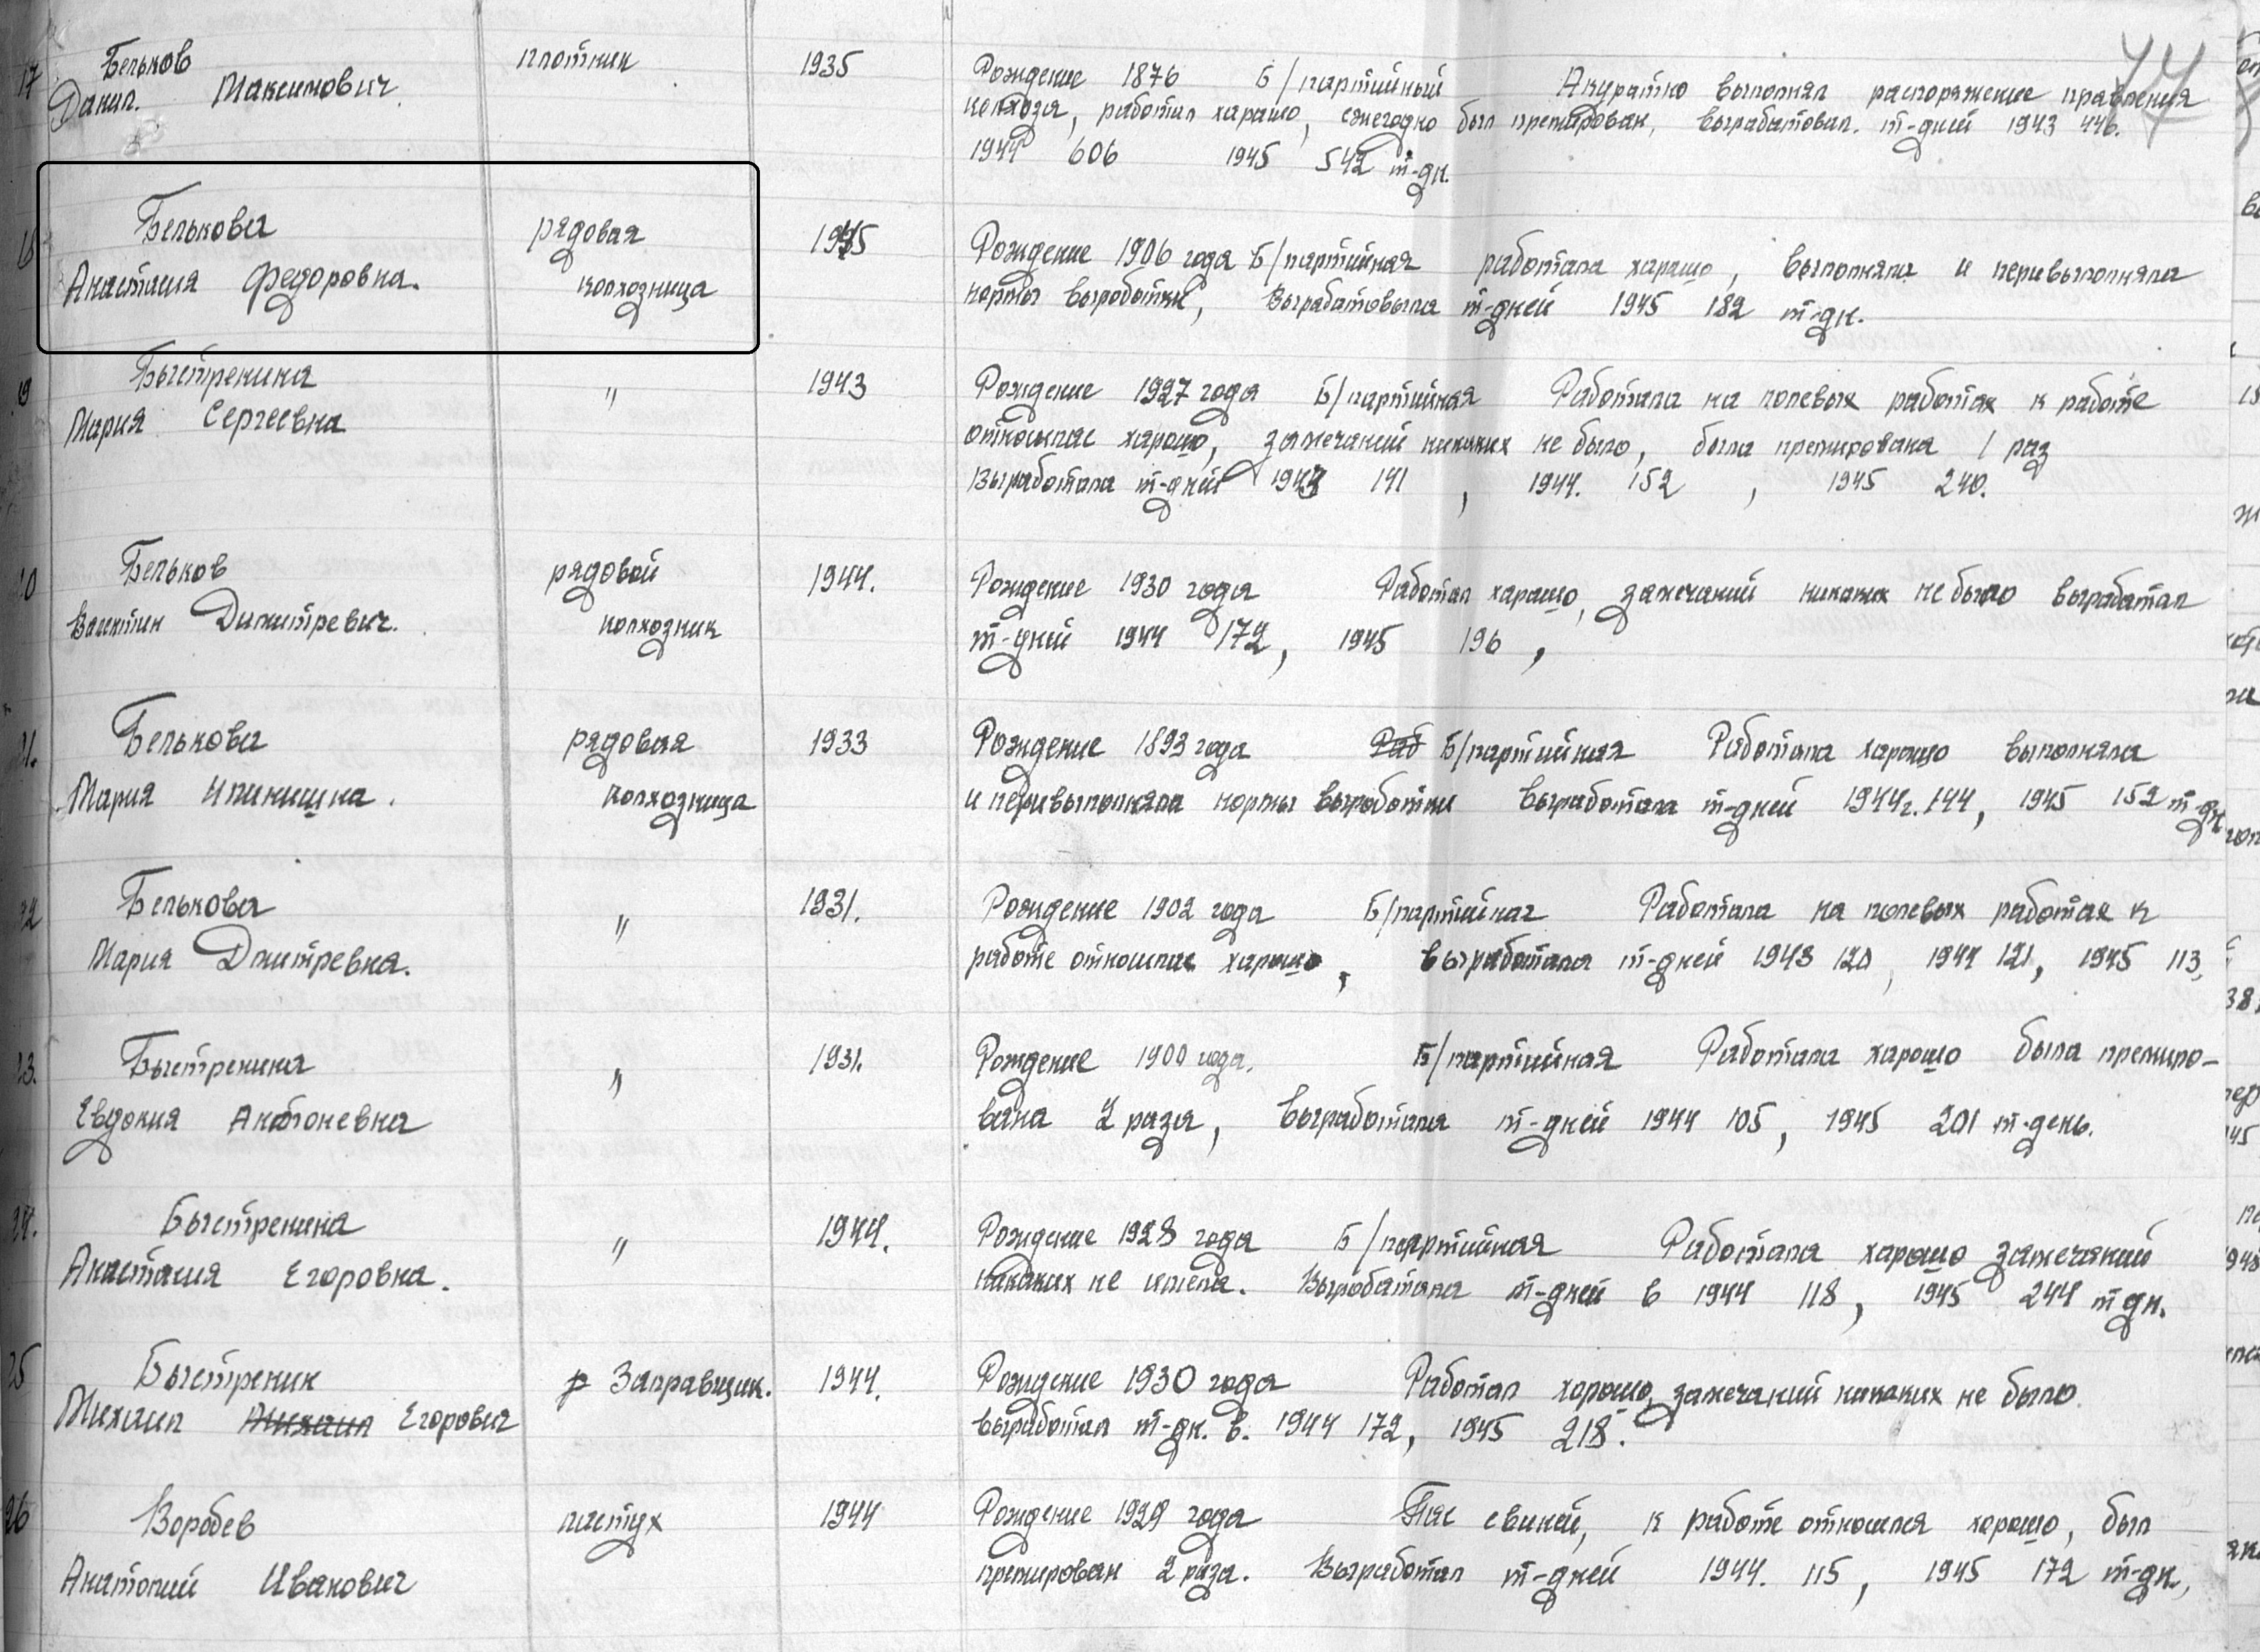 77
17 Бельков плотник 1935 Рождение 1876 Б/партийный Акуратно выполнял распоряжение правления
Данил. Максимович. колхоза, работал харашо, ежегодно был премирован, вырабатовал. т-дней 1943 446.
1944 606 1945 542 т-дн.
Белькова рядовая 1945 Рождение 1906 года Б/партийная работала харашо, выполняла и перивыполняла
Анастасия Федоровна. колхозница нормы выработки, Вырабатовыла т-дней 1945 182 т-дн.
Быстренина " 1943 Рождение 1927 года Б/партийная Работала на полевых работах к работе
Мария Сергеевна относилас харашо, замечаний никаких не было, была премирована 1 раз
Выработала т-дней 1943 141, 1944. 152, 1945 240.
Бельков рядовой 1944. Рождение 1930 года Работал харашо, замечаний никаких не было выработал
Валентин Димитревич. колхозник т-дней 1944 172, 1945 196,
Белькова рядовая 1933 Рождение 1893 года Раб Б/партийная Работала харашо выполняла
Мария Илинишна. колхозница и перивыполняла нормы выработки выработала т-дней 1944г. 144, 1945 152 т-дн
22 Белькова " 1931. Рождение 1902 года Б/партийная Работала на полевых работах к
Мария Дмитревна. работе относилас харашо, выработала т-дней 1943 120, 1944 121, 1945 113,
23. Быстренина " 1931. Рождение 1900 года. Б/партийная Работала харашо была премиро-
Евдокия Антоневна вана 2 раза, выработала т-дней 1944 105, 1945 201 т-день.
24. Быстренина " 1944. Рождение 1928 года Б/партийная Работала харашо замечаний
Анастасия Егоровна. никаких не имела. Выработала т-дней в 1944 118, 1945 244 т дн.
25 Быстренин р Заправщик. 1944. Рождение 1930 года Работал хорошо, замечаний никаких не было.
Михаил Михаил Егорович выработал т-дн. в. 1944 172, 1945 218.
26 Воробев пастух 1944 Рождение 1929 года Пас свиней, к работе относился хорошо, был
Анатолий Иванович премирован 2 раза. Выработал т-дней 1944. 115, 1945 172 т-дн.,